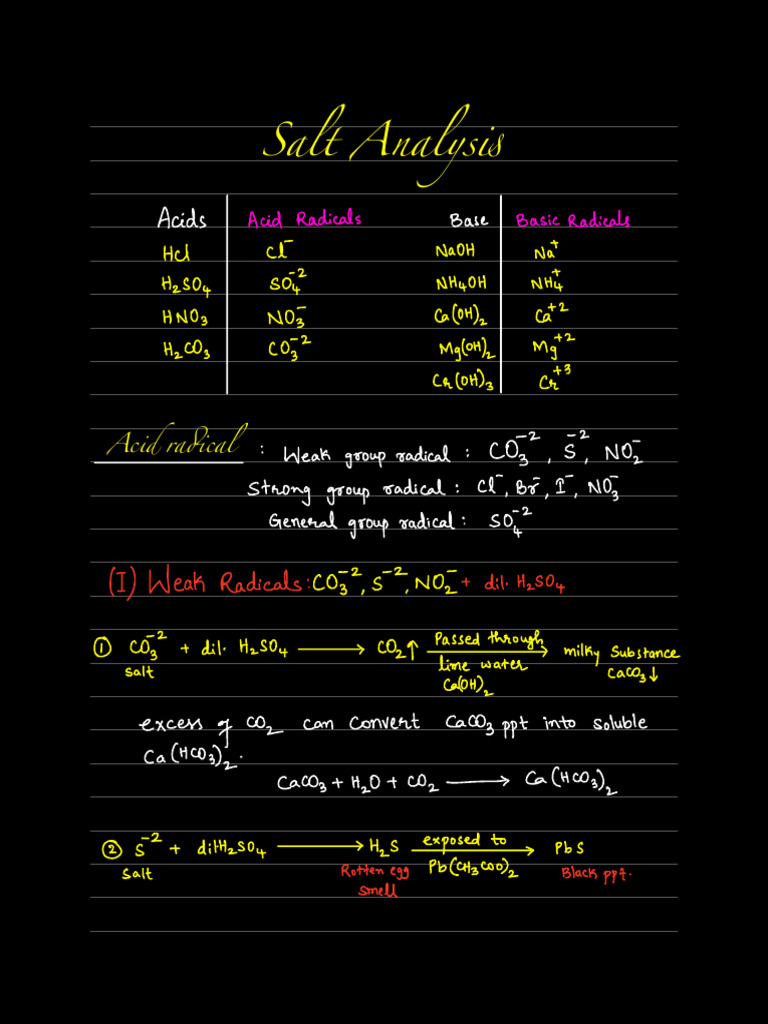 Salt Analysis
Acids Acid Radicals Base Basic Radicals
HCl Cl⁻ NaOH Na⁺
H₂SO₄ SO₄⁻² NH₄OH NH₄⁺
HNO₃ NO₃⁻ Ca(OH)₂ Ca⁺²
H₂CO₃ CO₃⁻² Mg(OH)₂ Mg⁺²
Cr(OH)₃ Cr⁺³
Acid radical : Weak group radical : CO₃⁻², S⁻², NO₂⁻
Strong group radical : Cl⁻, Br⁻, I⁻, NO₃⁻
General group radical : SO₄⁻²
(I) Weak Radicals: CO₃⁻², S⁻², NO₂⁻ + dil. H₂SO₄
① CO₃⁻² + dil. H₂SO₄ → CO₂↑ Passed through → milky Substance
salt lime water CaCO₃↓
Ca(OH)₂
excess of CO₂ can convert CaCO₃ ppt into soluble
Ca(HCO₃)₂.
CaCO₃ + H₂O + CO₂ → Ca(HCO₃)₂
② S⁻² + dil. H₂SO₄ → H₂S exposed to → PbS
salt Rotten egg Pb(CH₃COO)₂ Black ppt.
smell